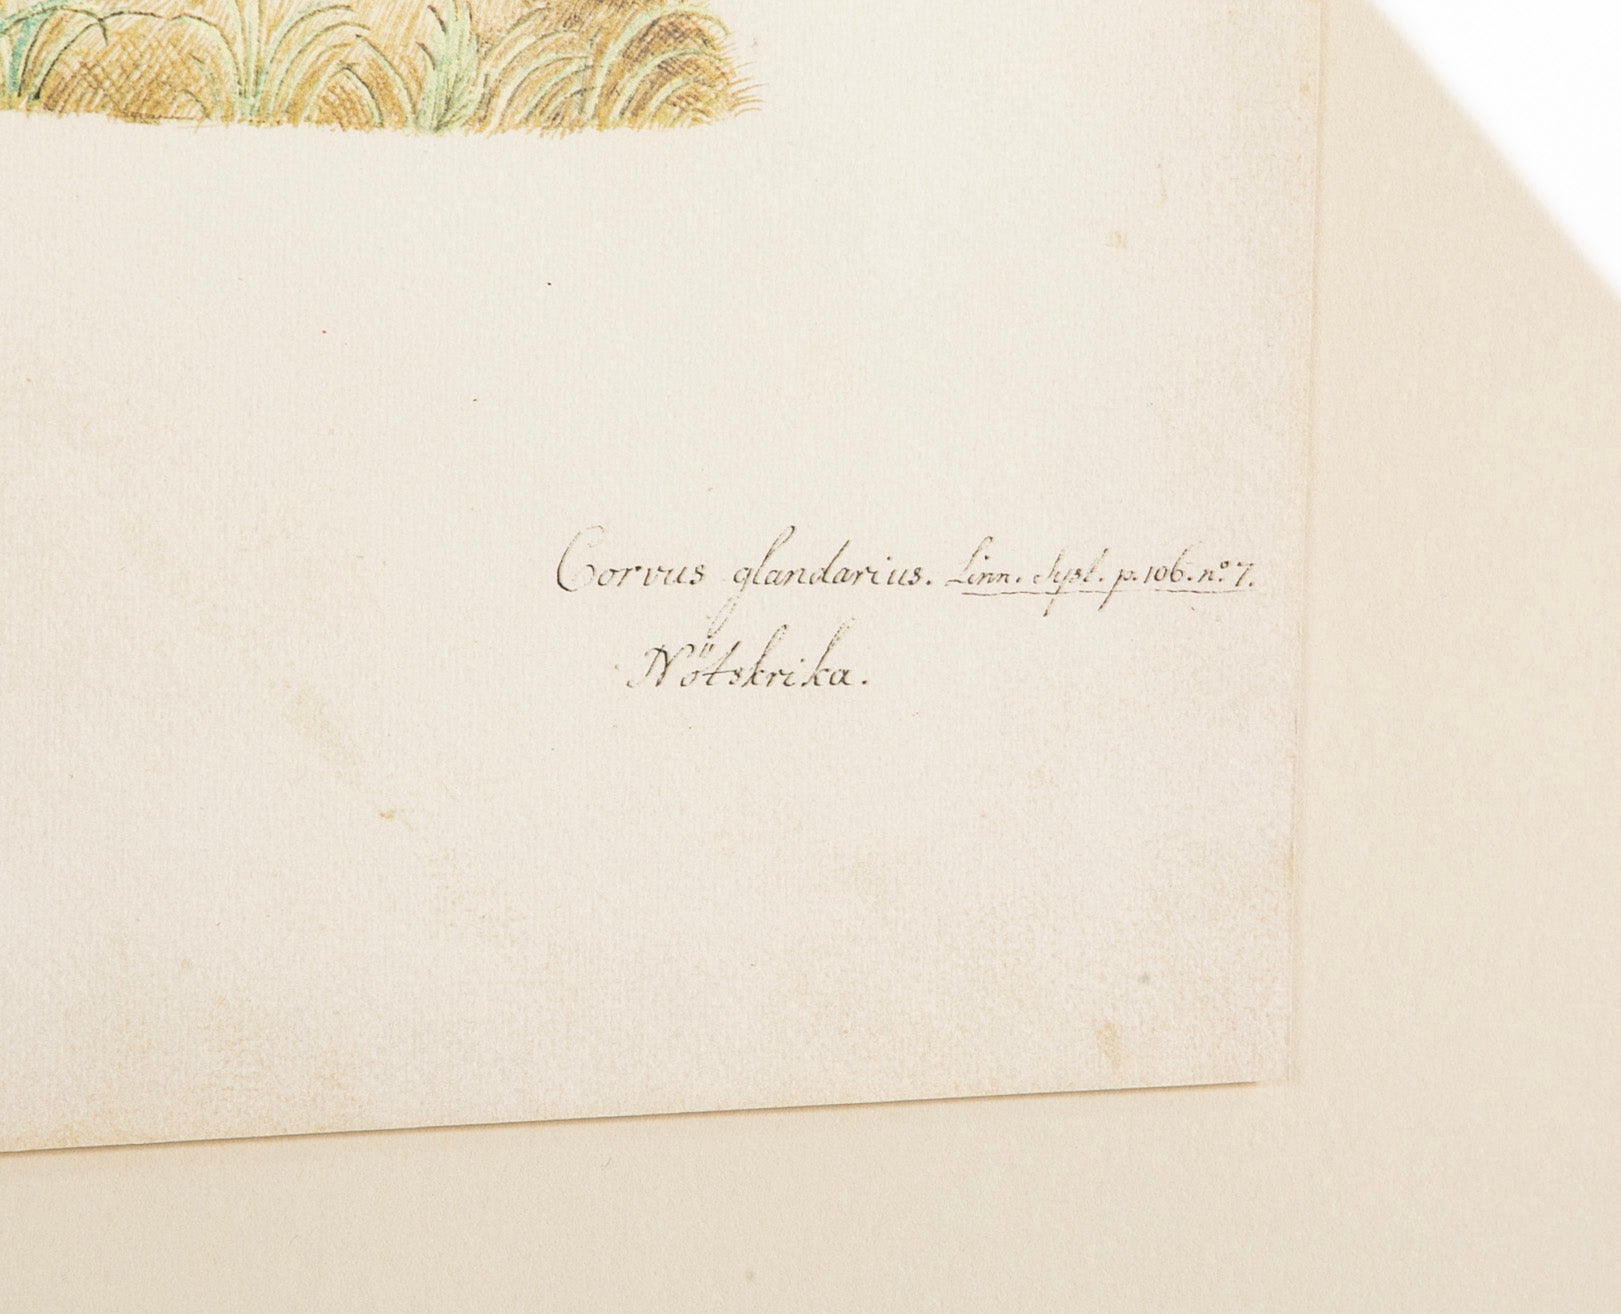 Corvus glandarius. Linn. Syst. p. 106. no. 7.
Nötskrika.